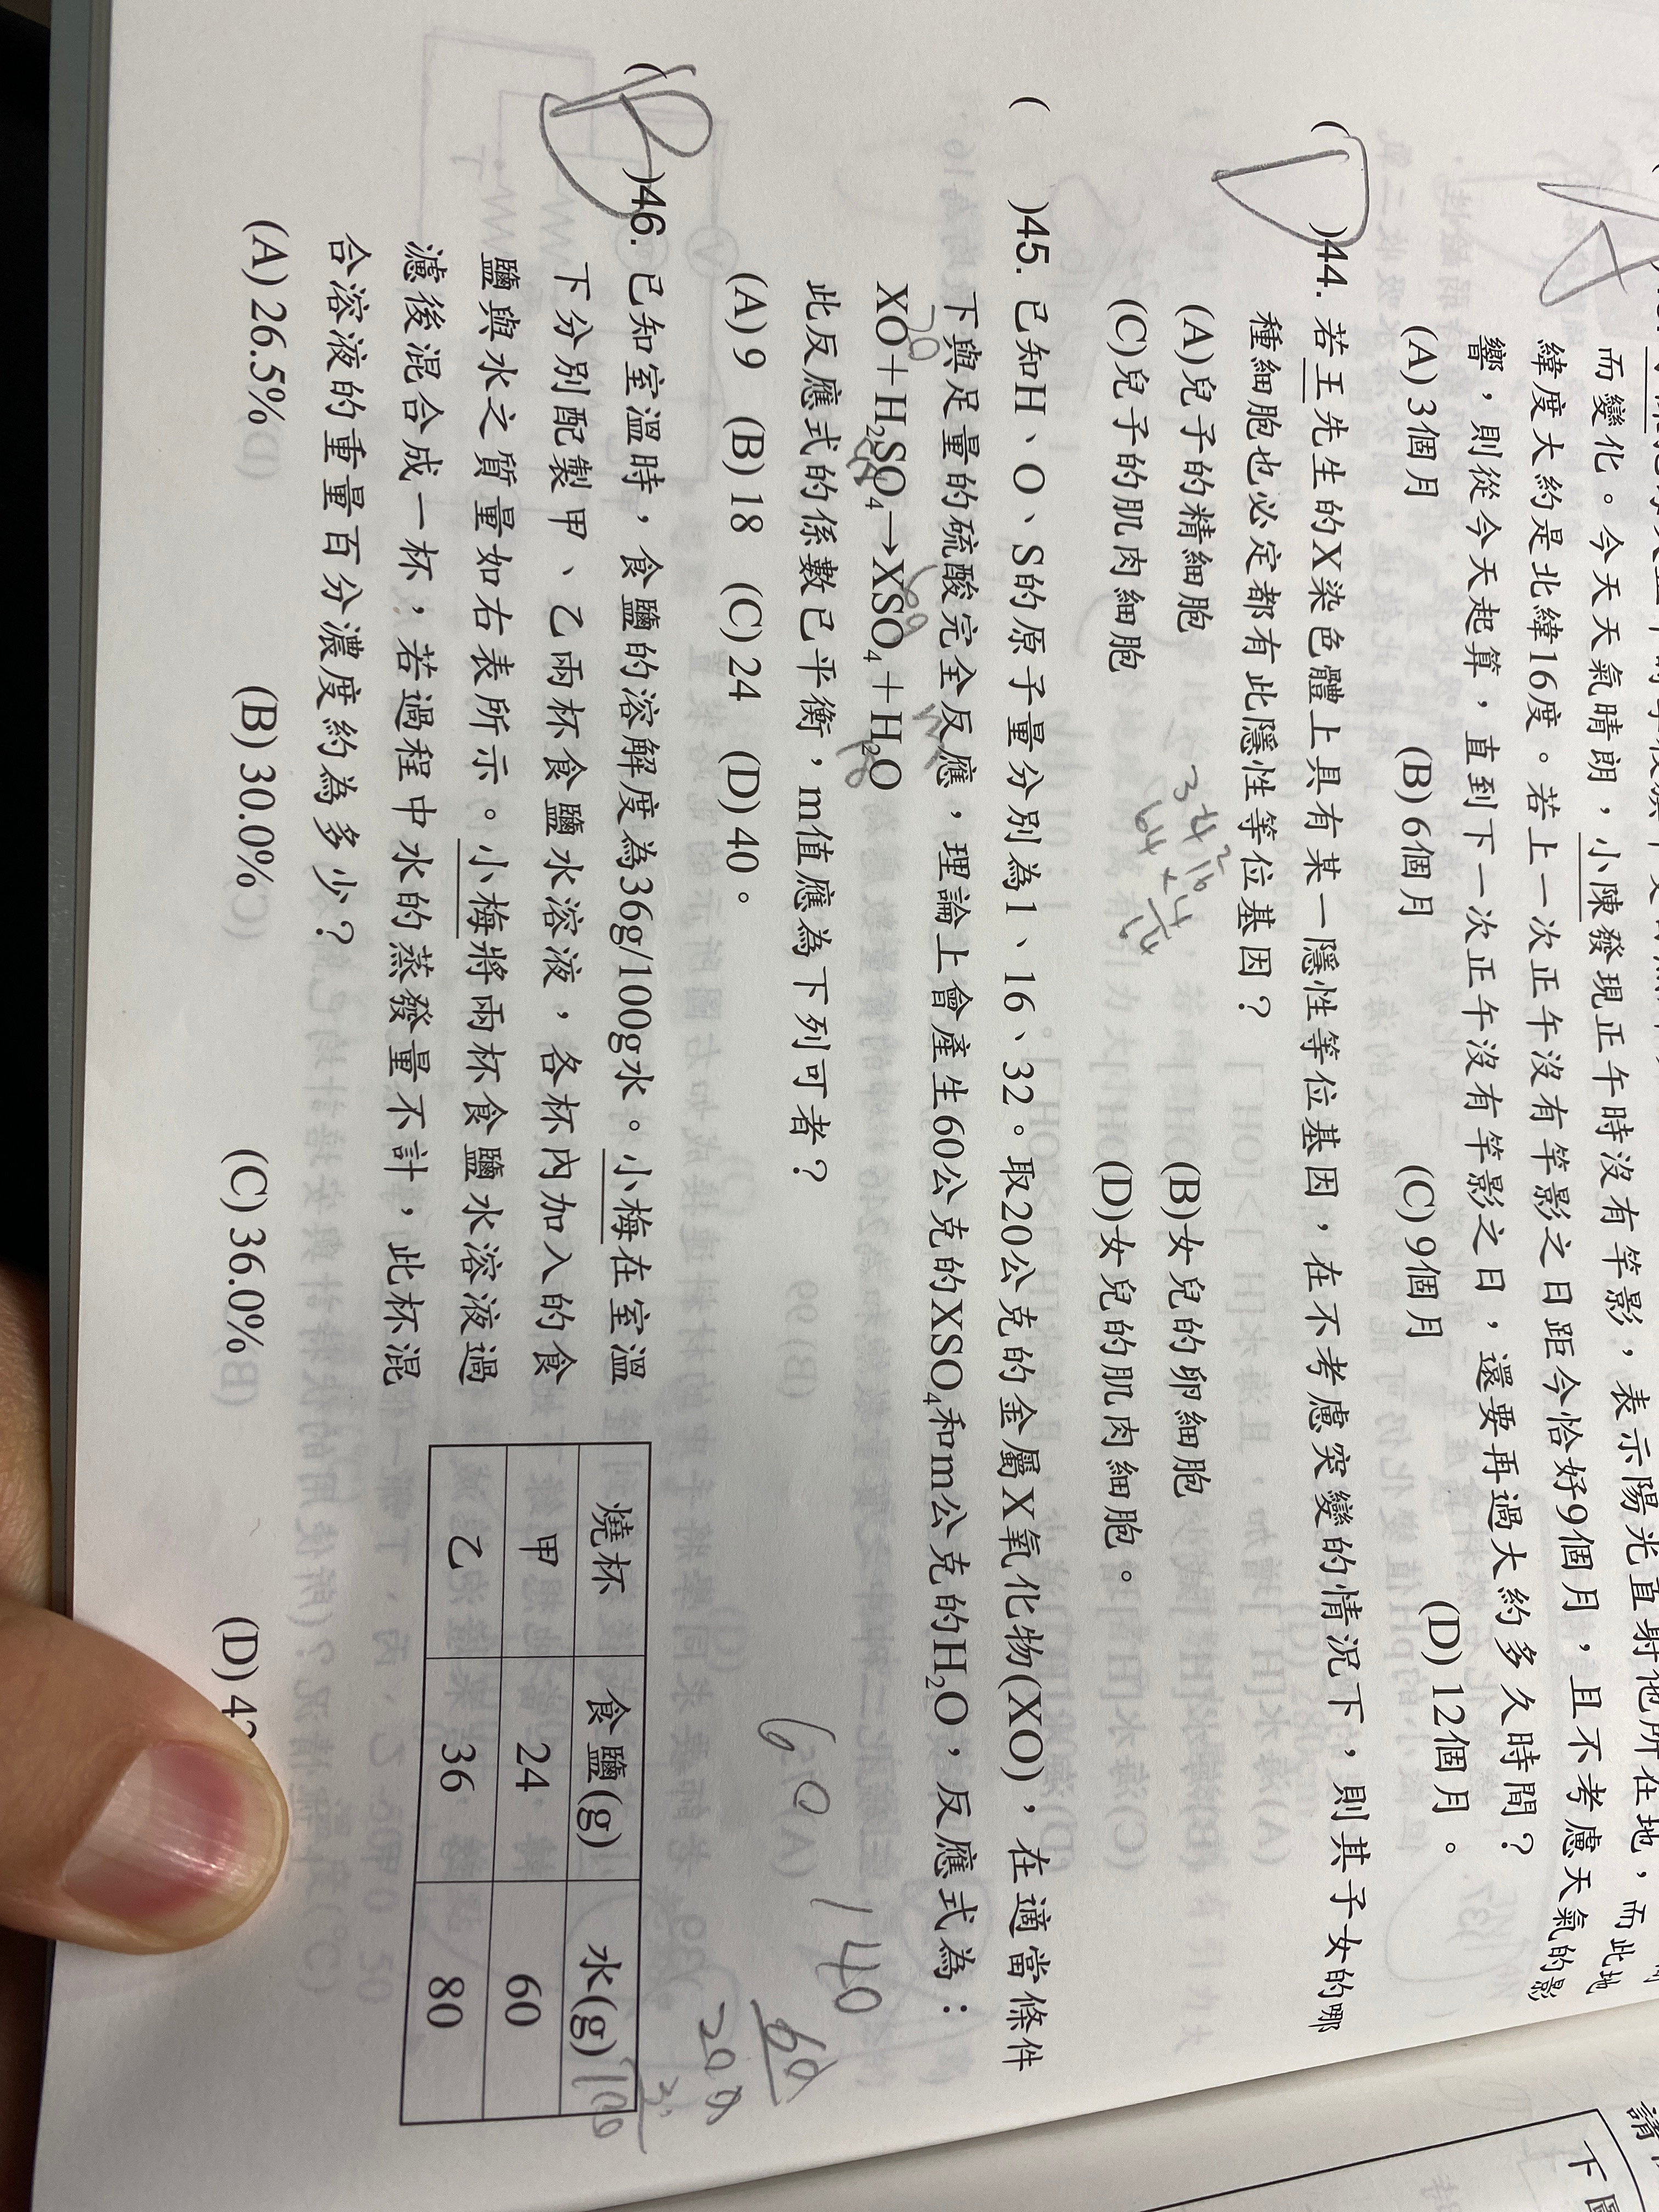 而變化。今天天氣晴朗，小陳發現正午時沒有竿影，表示陽光直射他所在地，而此地
緯度大約是北緯16度。若上一次正午沒有竿影之日距今恰好9個月，且不考慮天氣的影
響，則從今天起算，直到下一次正午沒有竿影之日，還要再過大約多久時間？
(A) 3個月 (B) 6個月 (C) 9個月 (D) 12個月。
( )44. 若王先生的X染色體上具有某一隱性等位基因，在不考慮突變的情況下，則其子女的哪
種細胞也必定都有此隱性等位基因？
(A)兒子的精細胞 (B)女兒的卵細胞
(C)兒子的肌肉細胞 (D)女兒的肌肉細胞。
( )45. 已知H、O、S的原子量分別為1、16、32。取20公克的金屬X氧化物(XO)，在適當條件
下與足量的硫酸完全反應，理論上會產生60公克的XSO₄和m公克的H₂O，反應式為：
XO＋H₂SO₄→XSO₄＋H₂O
此反應式的係數已平衡，m值應為下列可者？
(A) 9 (B) 18 (C) 24 (D) 40。
( )46. 已知室溫時，食鹽的溶解度為36g/100g水。小梅在室溫
下分別配製甲、乙兩杯食鹽水溶液，各杯內加入的食
鹽與水之質量如右表所示。小梅將兩杯食鹽水溶液過
濾後混合成一杯，若過程中水的蒸發量不計，此杯混
合溶液的重量百分濃度約為多少？
燒杯 食鹽(g) 水(g)
甲 24 60
乙 36 80
(A) 26.5% (B) 30.0% (C) 36.0% (D)
60
140
60
200